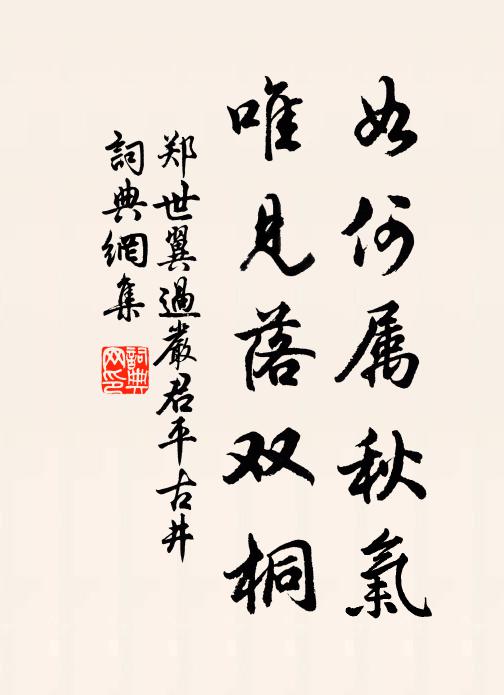 如何属秋氣
唯見落双桐
郑世翼過嚴君平古井
詞典網集
詞典网印